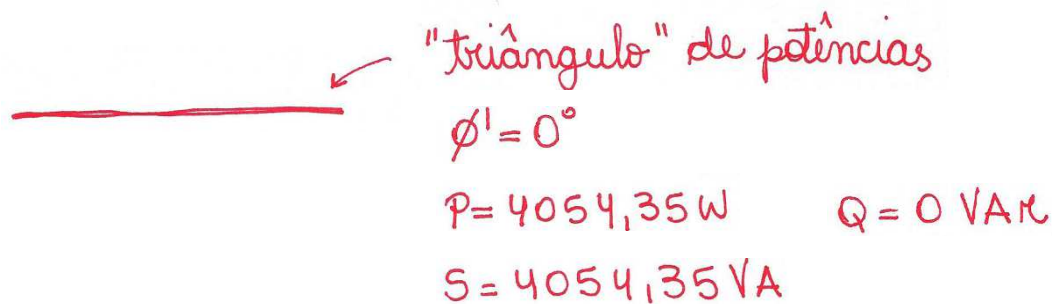 "triângulo" de potências
ø' = 0°
P = 4054,35 W Q = 0 VAR
S = 4054,35 VA